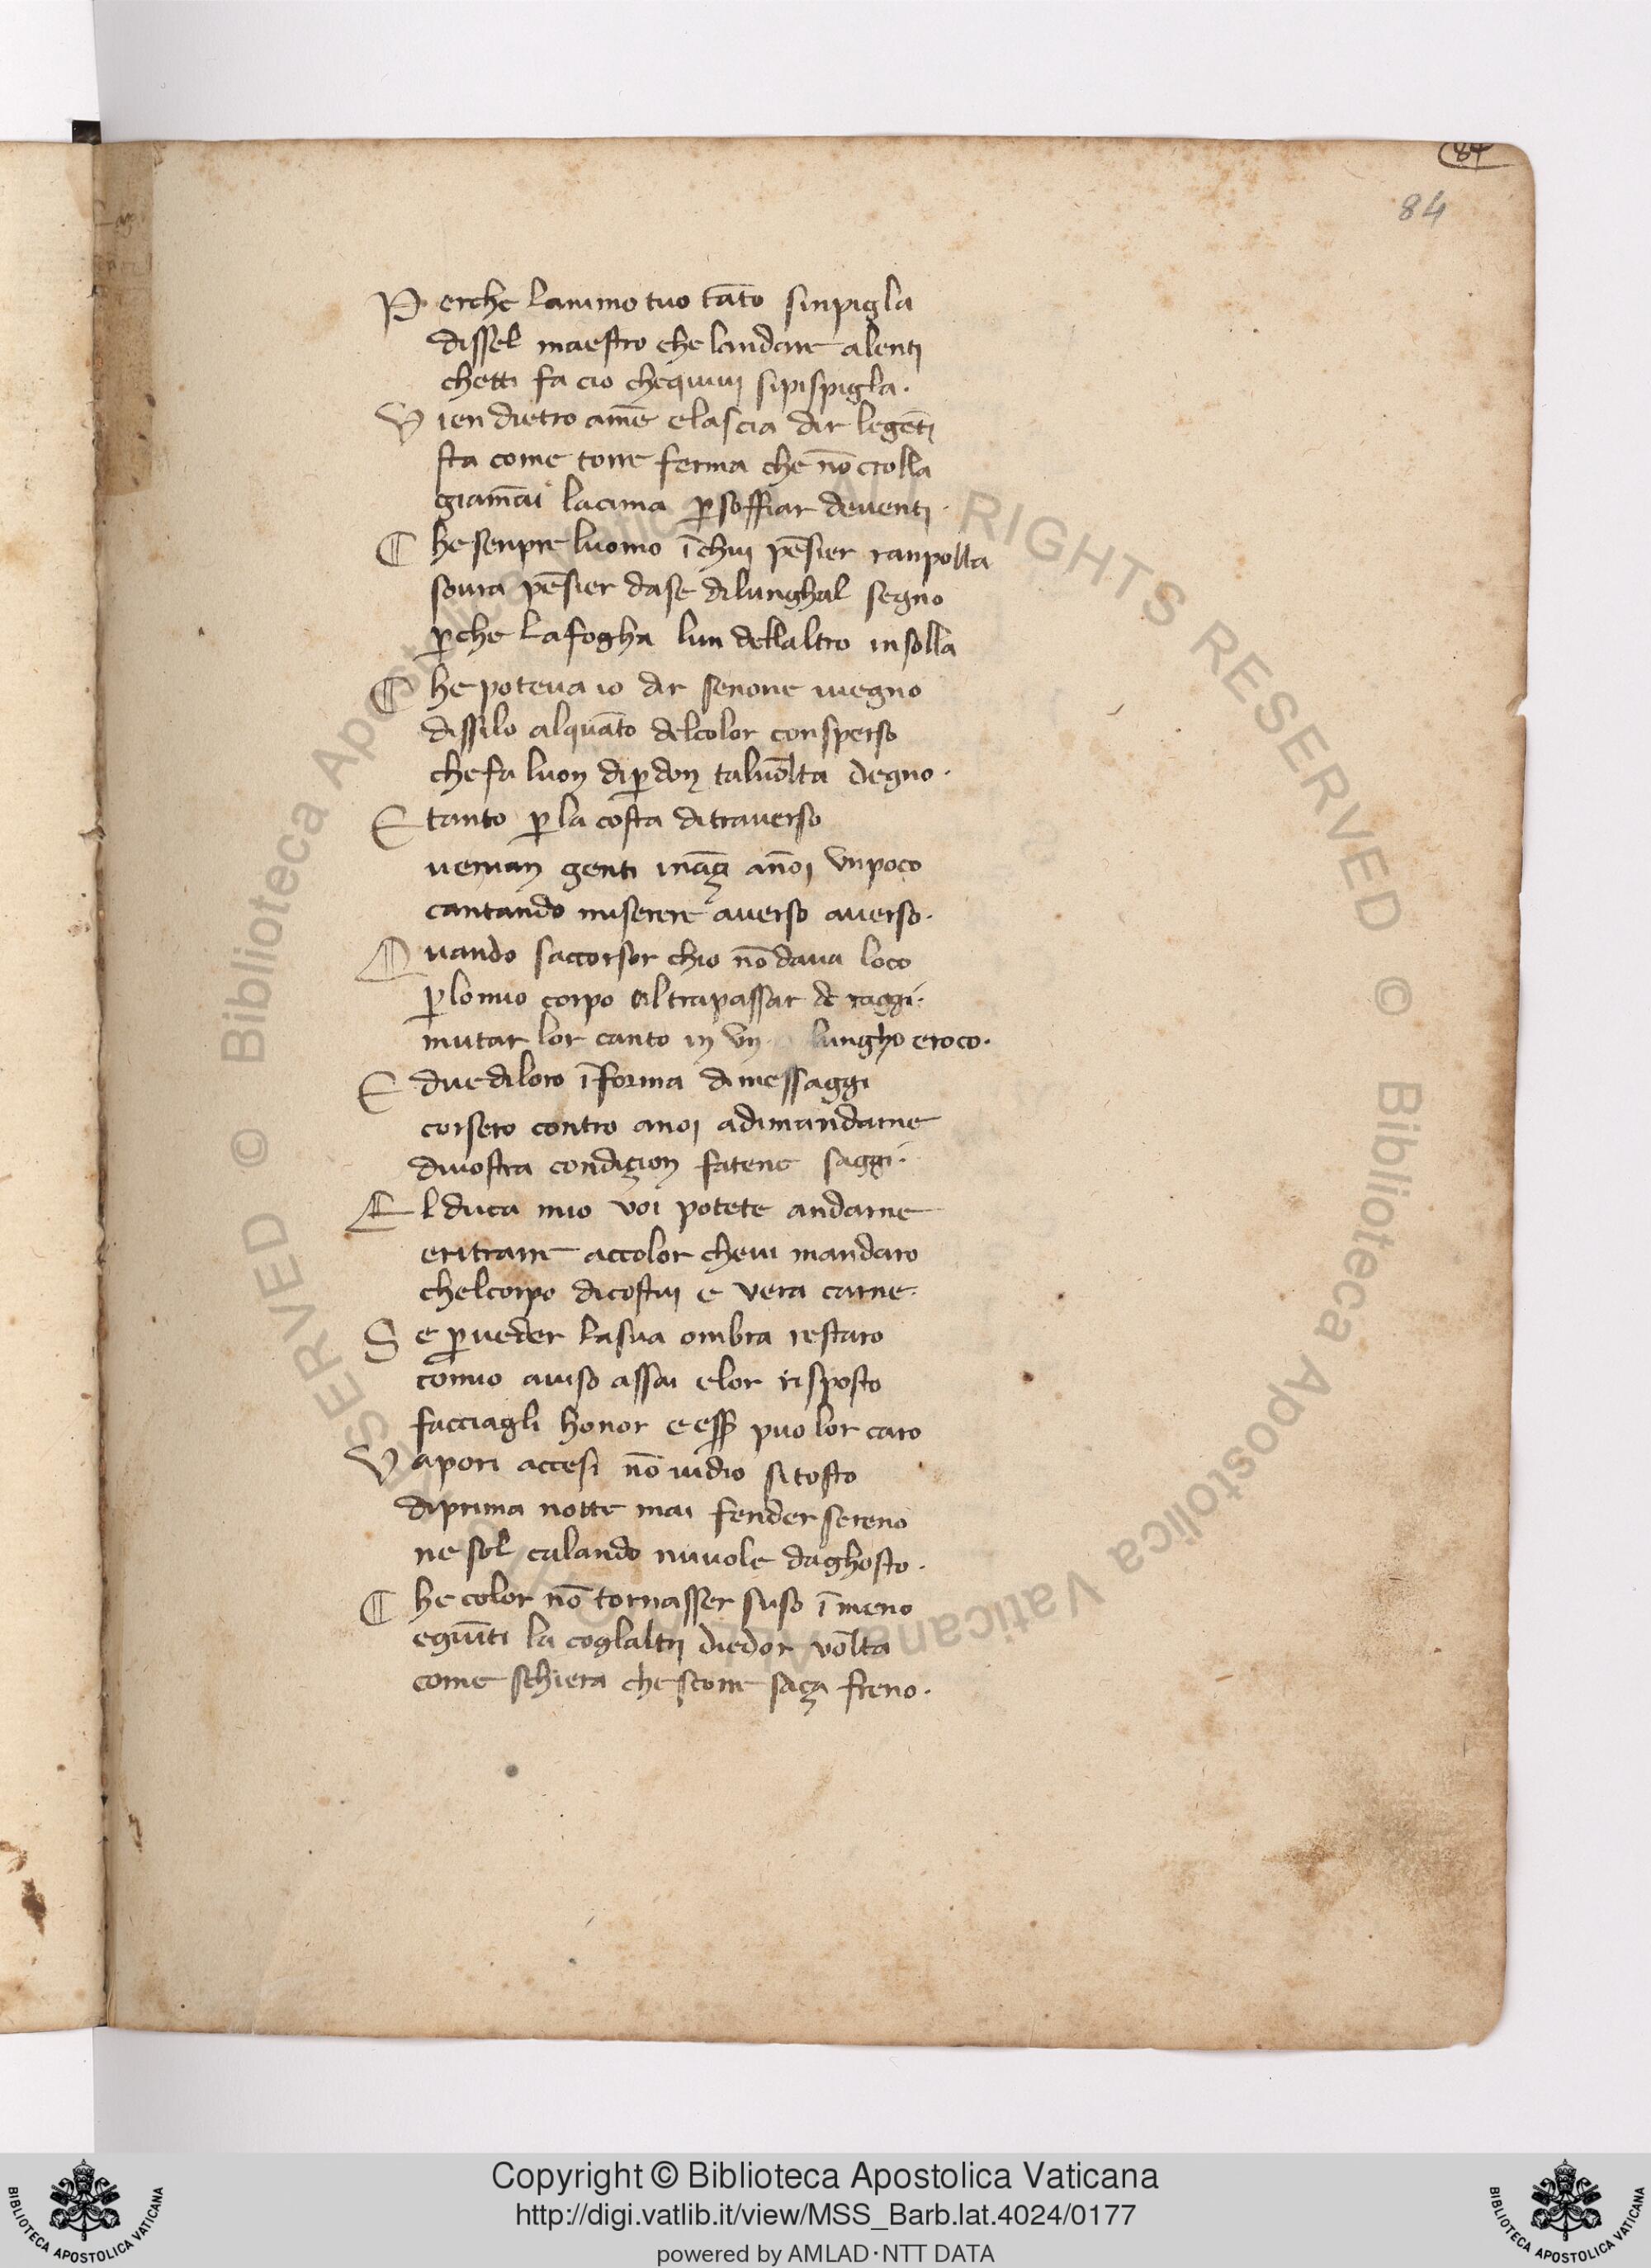 84
84
P erche lanimo tuo tāto sinpigla
dissel maestro che landare alenti
chetti fa cio chequiui sipispigla.
V ien dietro amē elascia dir legēti
sta come torre ferma che nō crolla
giamāi lacima ꝑsoffiar deuenti.
C he senpre luomo ī chuj pēsier ranpolla
soura pēsier dase dilunghal segno
ꝑche lafogha lun dellaltro insolla
C he poteua io dir senone iuegno
dissilo alquāto delcolor consperso
chefa luon diꝑdon taluōlta degno.
E tanto ꝑ la costa ditrauerso
uenian genti ināçi ānoi vnpoco
cantando miserere auerso auerso.
Q uando saccorser chio nō daua loco
ꝑlomio corpo altrapassar de raggi.
mutar lor canto in vn lungho eroco.
E due diloro īforma dimessaggi
corsero contro anoi adimandarne
diuostra condiçion fatene saggi.
E l duca mio voi potete andarne
eritrarre accolor cheui mandaro
chelcorpo dicostui e vera carne.
S e ꝑueder lasua ombra restaro
comio auiso assai elor risposto
facciagli honor e esser puo lor caro
V apori accesi nō uidio sitosto
diprima notte mai fender sereno
ne sol calando nuuole daghosto.
C he color nō tornasser suso ī meno
egiūti la coglaltri diedor volta
come schiera chescorre sāça freno.
© Biblioteca Apostolica Vaticana ALL RIGHTS RESERVED
© Biblioteca Apostolica Vaticana ALL RIGHTS RESERVED
BIBLIOTECA APOSTOLICA VATICANA
Copyright © Biblioteca Apostolica Vaticana
http://digi.vatlib.it/view/MSS_Barb.lat.4024/0177
powered by AMLAD·NTT DATA
BIBLIOTECA APOSTOLICA VATICANA